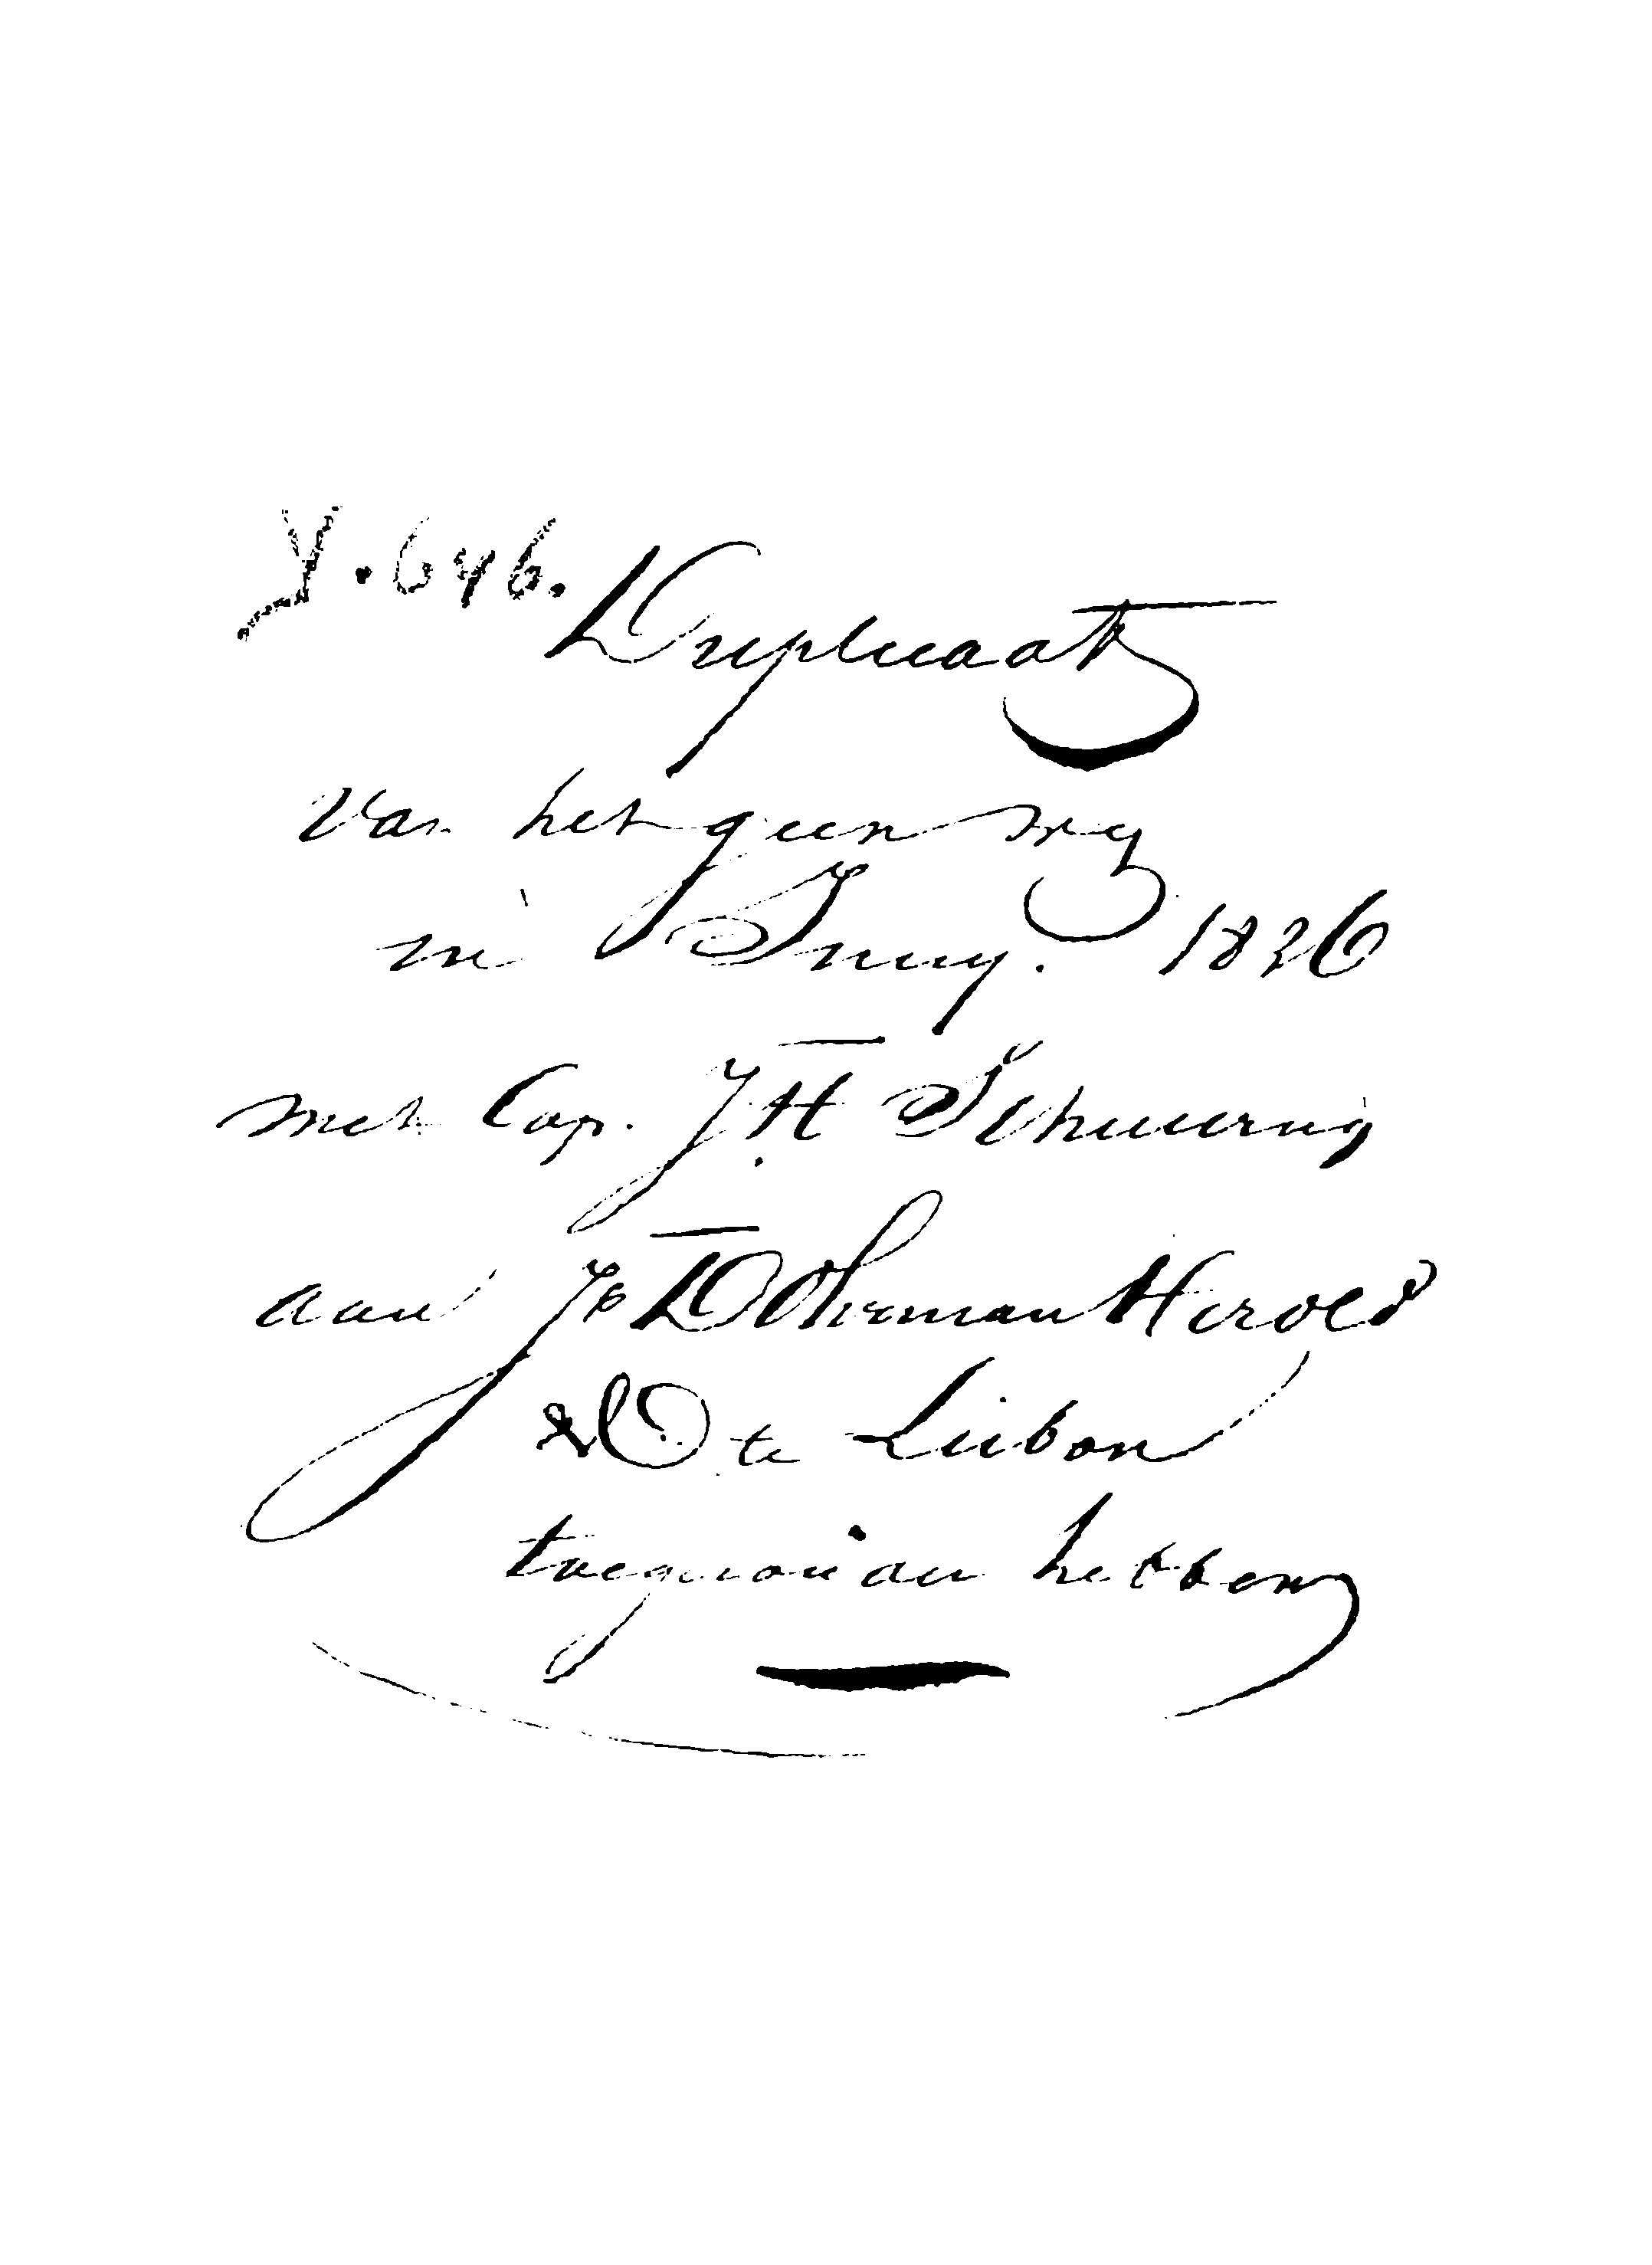 Y. 646. Duplicaat
Van het geen wy
in 1826
met Cap. J.H. Schuuring
aan Jb Dohrman Herold
& Co te Lisbon
toegesonden hebben